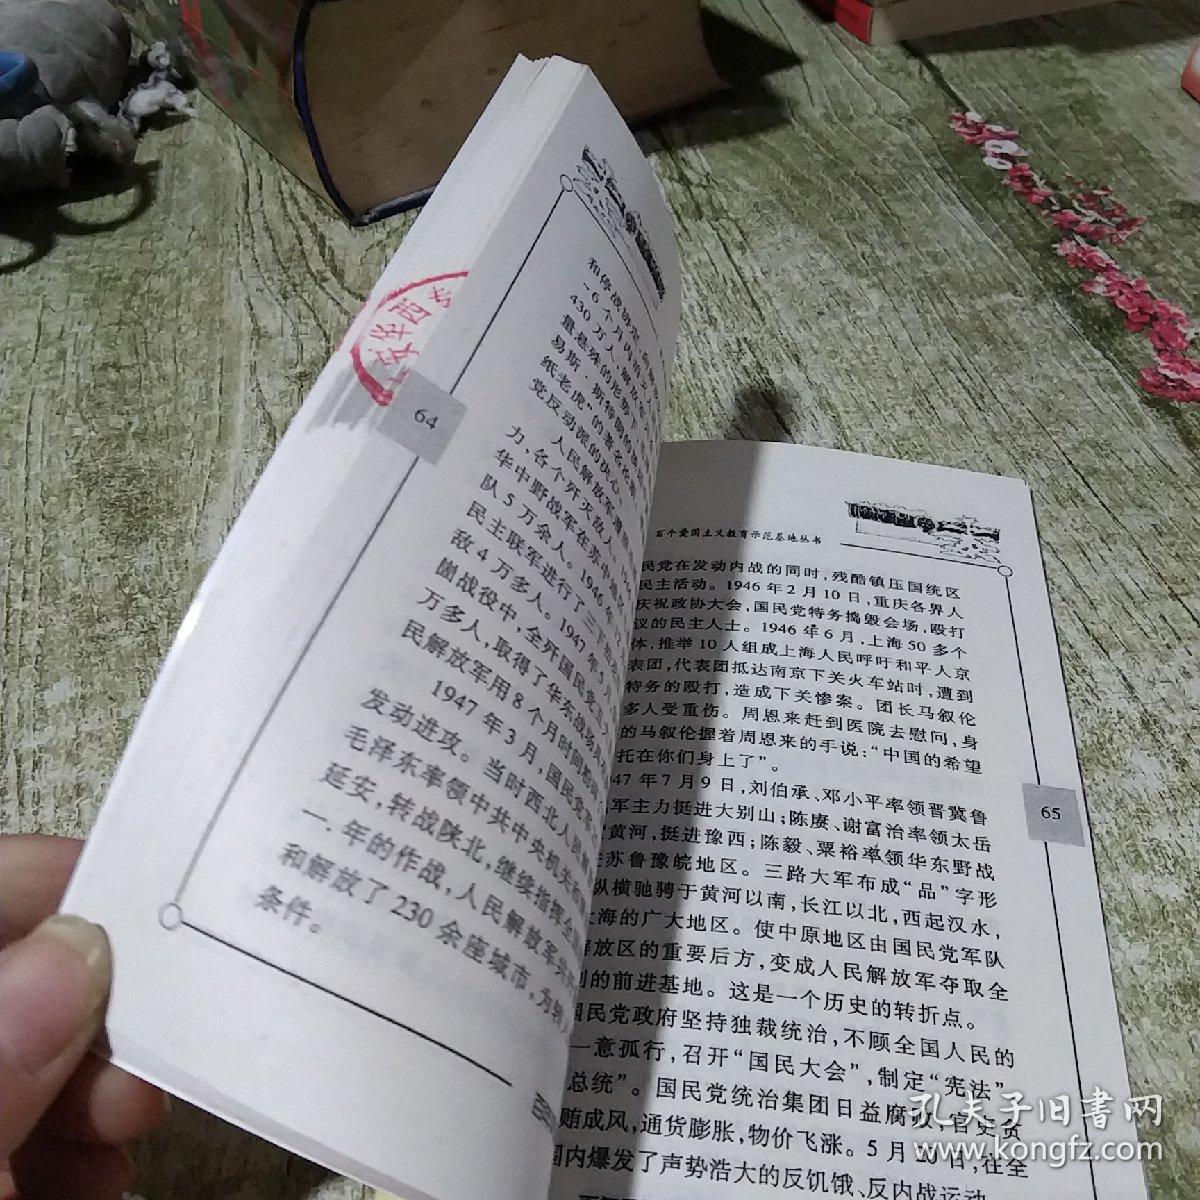 和停战协定,
~6 个月内消
430 万人,解放军
量悬殊的形势下,
易斯·斯特朗的
纸老虎”的著名论
党反动派的决心。
人民解放军遵
力,各个歼灭敌人
华中野战军在苏中地区
队 5 万余人。1946 年 12
民主联军进行了“三下
敌 4 万多人。1947 年 5 月
崮战役中,全歼国民党
万多人,取得了华东战场
民解放军用 8 个月时间
1947 年 3 月,国民党
发动进攻。当时西北人民解
毛泽东率领中共中央机关
延安,转战陕北,继续指挥全
一年的作战,人民解放军共
和解放了 230 余座城市,为转
条件。
64
百个爱国主义教育示范基地丛书
民党在发动内战的同时,残酷镇压国统区
民主活动。1946 年 2 月 10 日,重庆各界人
庆祝政协大会,国民党特务捣毁会场,殴打
议的民主人士。1946 年 6 月,上海 50 多个
体,推举 10 人组成上海人民呼吁和平人京
表团,代表团抵达南京下关火车站时,遭到
特务的殴打,造成下关惨案。团长马叙伦
多人受重伤。周恩来赶到医院去慰问,身
的马叙伦握着周恩来的手说:“中国的希望
托在你们身上了”。
47 年 7 月 9 日,刘伯承、邓小平率领晋冀鲁
军主力挺进大别山;陈赓、谢富治率领太岳
黄河,挺进豫西;陈毅、粟裕率领华东野战
苏鲁豫皖地区。三路大军布成“品”字形
纵横驰骋于黄河以南,长江以北,西起汉水,
海的广大地区。使中原地区由国民党军队
解放区的重要后方,变成人民解放军夺取全
利的前进基地。这是一个历史的转折点。
国民党政府坚持独裁统治,不顾全国人民的
一意孤行,召开“国民大会”,制定“宪法”
总统”。国民党统治集团日益腐败,官吏贪
贿成风,通货膨胀,物价飞涨。5 月 20 日,在全
国内爆发了声势浩大的反饥饿、反内战运动
65
孔夫子旧书网
www.kongfz.com